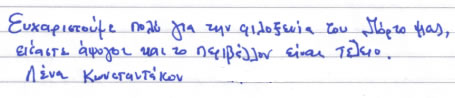 Ευχαριστούμε πολύ για την φιλοξενία του Πόρτο μας,
είσαστε άψογοι και το περιβάλλον είναι τέλειο.
Λένα Κωνσταντάκου